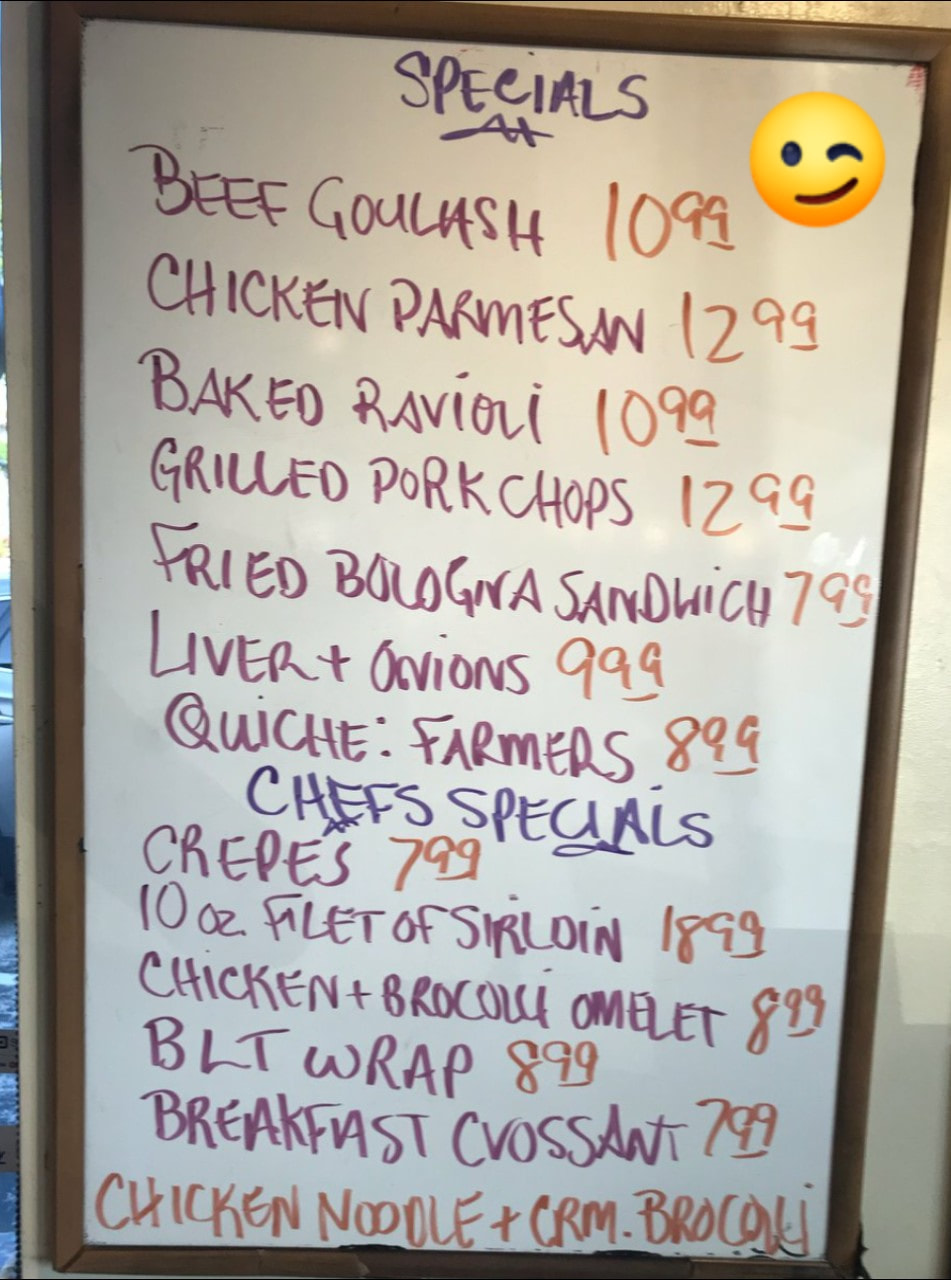 SPECIALS
BEEF GOULASH 10 99
CHICKEN PARMESAN 12 99
BAKED RAVIOLI 10 99
GRILLED PORK CHOPS 12 99
FRIED BOLOGNA SANDWICH 7 99
LIVER + ONIONS 9 99
QUICHE: FARMERS 8 99
CHEFS SPECIALS
CREPES 7 99
10 oz. FILET OF SIRLOIN 18 99
CHICKEN + BROCOLLI OMELET 8 99
BLT WRAP 8 99
BREAKFAST CVOSSANT 7 99
CHICKEN NOODLE + CRM. BROCOLLI